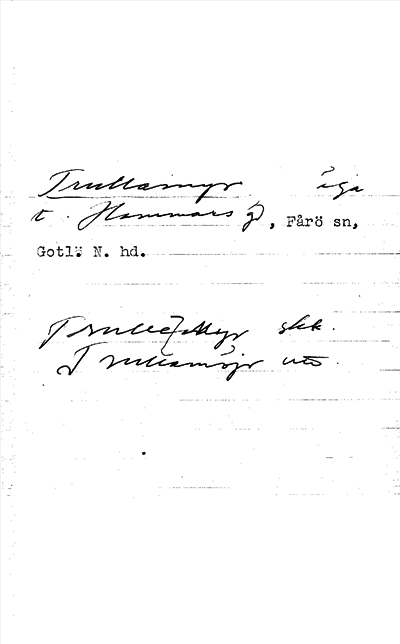 Trullamyr äga
t. Hammars gd, Fårö sn,
Gotl. N. hd.
Trulle myr skk.
Trullamöjr utt.